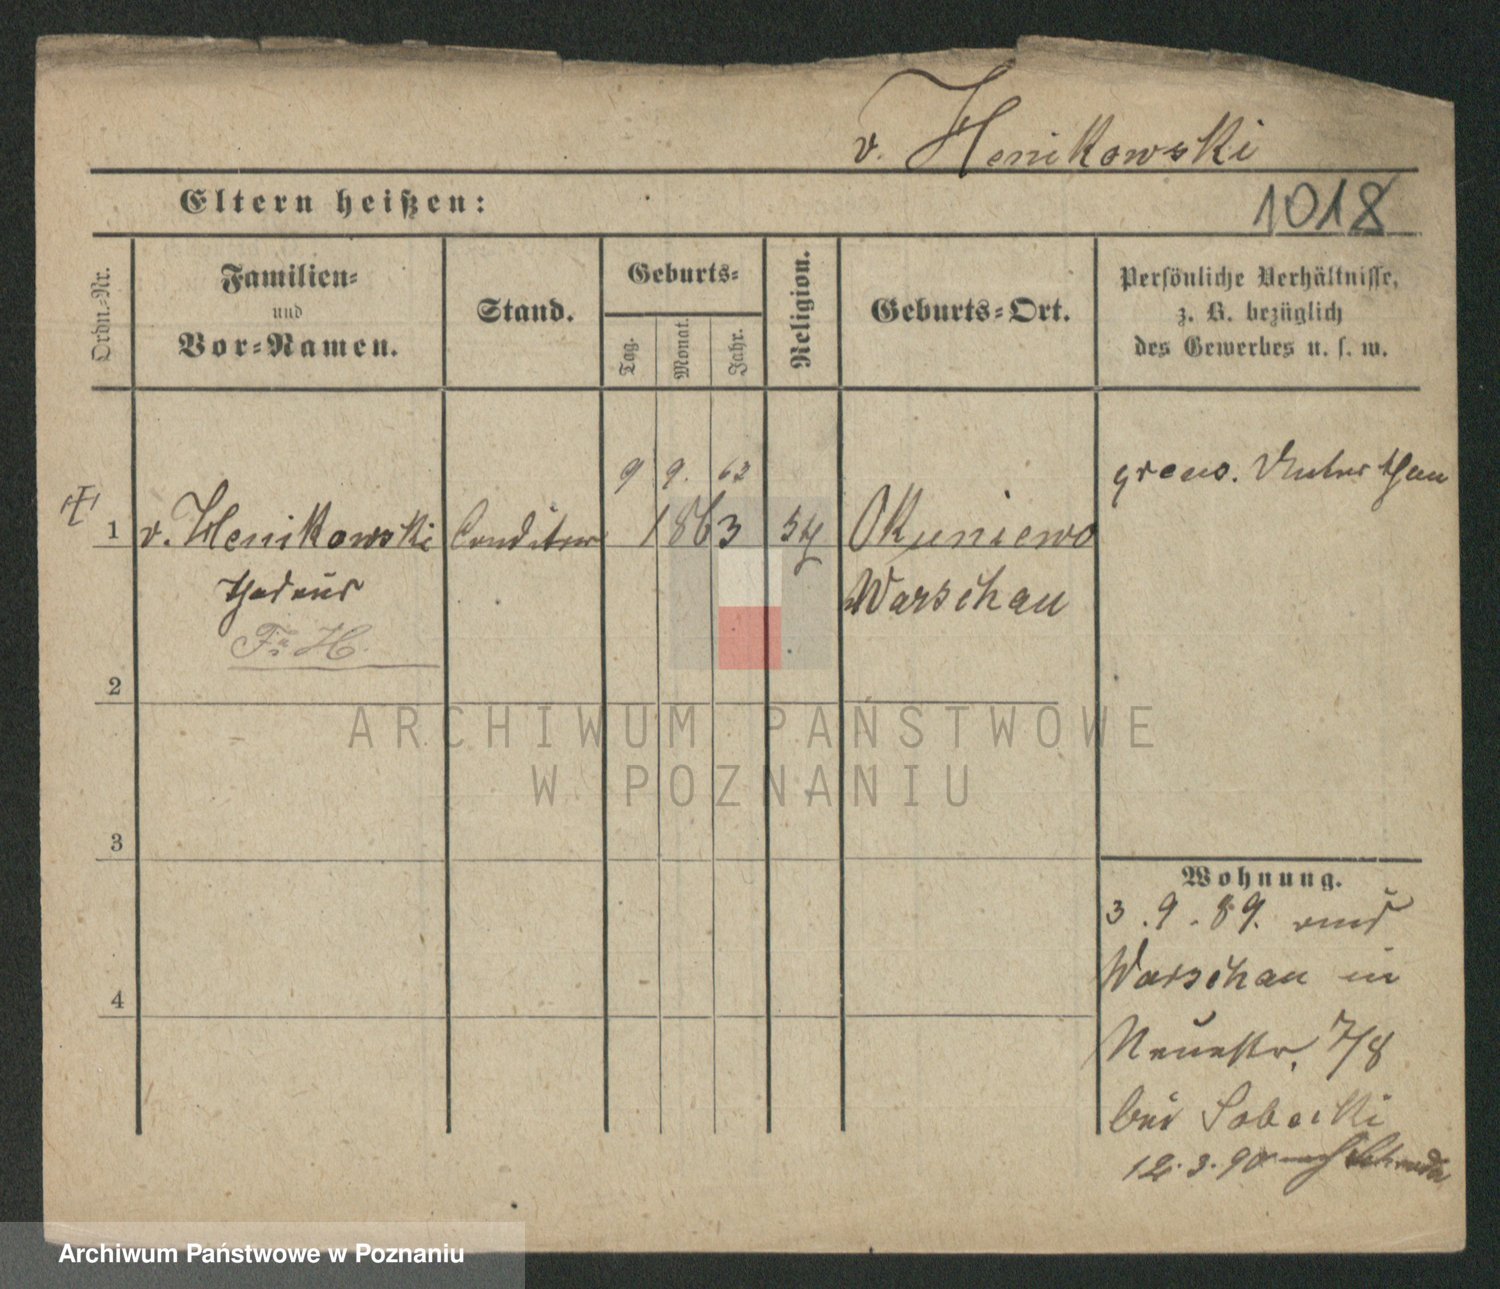 v. Henikowski
Eltern heißen:
1018
Ordn.-Nr.
Familien-
und
Vor-Namen.
Stand.
Geburts-
Tag.
Monat.
Jahr.
Religion.
Geburts-Ort.
Persönliche Verhältnisse,
z. B. bezüglich
des Gewerbes u. s. w.
9 9. 63
preus. Unterthan
1 v. Henikowski Conditor 1863 Okuniewo
Thadeus Warschau
Fr. H.
2
ARCHIWUM PAŃSTWOWE
W POZNANIU
3
Wohnung.
3.9.89. aus
Warschau in
4
Neuestr. 7/8
bei Sobecki
12.3.90 nach Schroda
Archiwum Państwowe w Poznaniu